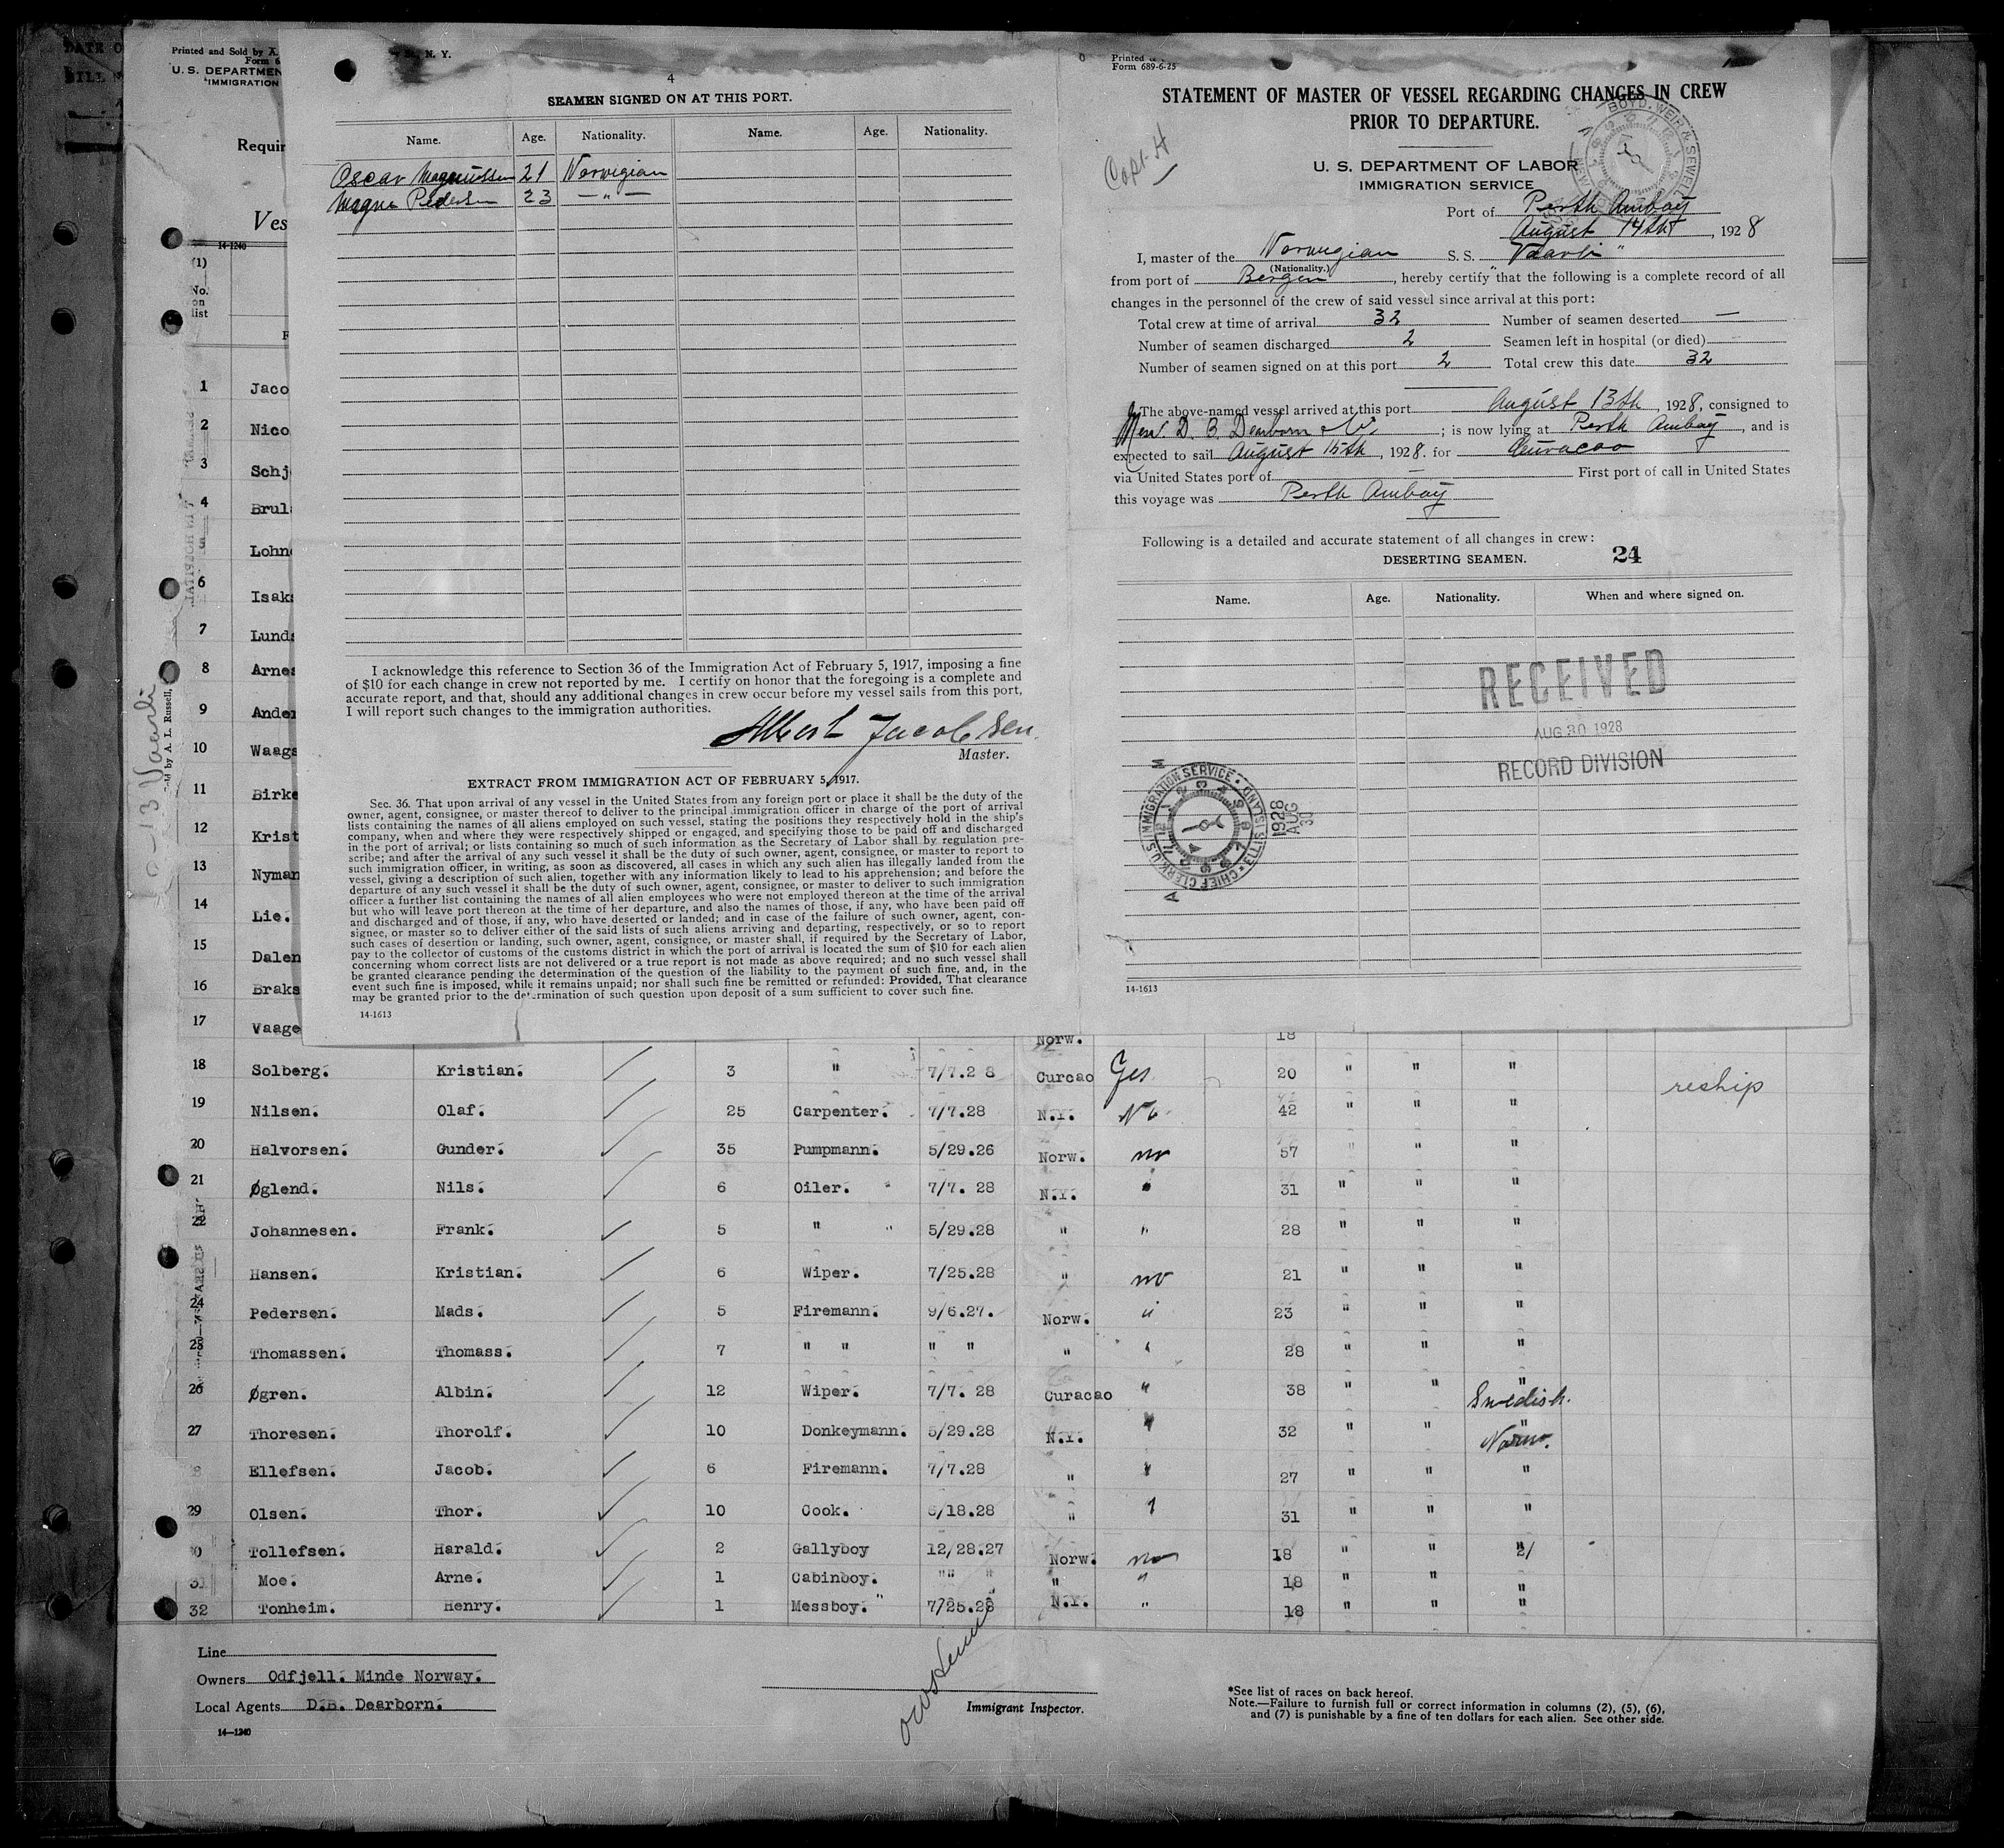 Printed and Sold by A.
Form 6
U. S. DEPARTMEN
IMMIGRATION
Requir
Ves
14-1240
(1)
No.
on
list
1 Jaco
2 Nico
3 Schj
4 Brul
5 Lohn
6 Isaks
7 Lunds
8 Arnes
9 Ander
10 Waags
11 Birke
12 Krist
13 Nyman
14 Lie.
15 Dalen
16 Braks
17 Vaage
N. Y.
4
SEAMEN SIGNED ON AT THIS PORT.
Name. Age. Nationality. Name. Age. Nationality.
Oscar Magnussen 21 Norwegian
Magne Pedersen 23 — " —
I acknowledge this reference to Section 36 of the Immigration Act of February 5, 1917, imposing a fine
of $10 for each change in crew not reported by me. I certify on honor that the foregoing is a complete and
accurate report, and that, should any additional changes in crew occur before my vessel sails from this port,
I will report such changes to the immigration authorities.
Albert Jacobsen
Master.
EXTRACT FROM IMMIGRATION ACT OF FEBRUARY 5, 1917.
Sec. 36. That upon arrival of any vessel in the United States from any foreign port or place it shall be the duty of the
owner, agent, consignee, or master thereof to deliver to the principal immigration officer in charge of the port of arrival
lists containing the names of all aliens employed on such vessel, stating the positions they respectively hold in the ship's
company, when and where they were respectively shipped or engaged, and specifying those to be paid off and discharged
in the port of arrival; or lists containing so much of such information as the Secretary of Labor shall by regulation pre-
scribe; and after the arrival of any such vessel it shall be the duty of such owner, agent, consignee, or master to report to
such immigration officer, in writing, as soon as discovered, all cases in which any such alien has illegally landed from the
vessel, giving a description of such alien, together with any information likely to lead to his apprehension; and before the
departure of any such vessel it shall be the duty of such owner, agent, consignee, or master to deliver to such immigration
officer a further list containing the names of all alien employees who were not employed thereon at the time of the arrival
but who will leave port thereon at the time of her departure, and also the names of those, if any, who have been paid off
and discharged and of those, if any, who have deserted or landed; and in case of the failure of such owner, agent, con-
signee, or master so to deliver either of the said lists of such aliens arriving and departing, respectively, or so to report
such cases of desertion or landing, such owner, agent, consignee, or master shall, if required by the Secretary of Labor,
pay to the collector of customs of the customs district in which the port of arrival is located the sum of $10 for each alien
concerning whom correct lists are not delivered or a true report is not made as above required; and no such vessel shall
be granted clearance pending the determination of the question of the liability to the payment of such fine, and, in the
event such fine is imposed, while it remains unpaid; nor shall such fine be remitted or refunded: Provided, That clearance
may be granted prior to the determination of such question upon deposit of a sum sufficient to cover such fine.
14-1613
Printed
Form 689-6-25
STATEMENT OF MASTER OF VESSEL REGARDING CHANGES IN CREW
PRIOR TO DEPARTURE.
BOYD, WEIR & SEWELL
U. S. DEPARTMENT OF LABOR
IMMIGRATION SERVICE
Port of Perth Amboy
August 14th, 1928
I, master of the Norwegian S. S. "Vaarli"
(Nationality.)
from port of Bergen, hereby certify that the following is a complete record of all
changes in the personnel of the crew of said vessel since arrival at this port:
Total crew at time of arrival 32 Number of seamen deserted —
Number of seamen discharged 2 Seamen left in hospital (or died) —
Number of seamen signed on at this port 2 Total crew this date 32
The above-named vessel arrived at this port August 13th, 1928, consigned to
Mess. D. B. Dearborn & Co; is now lying at Perth Amboy, and is
expected to sail August 15th, 1928. for Curacao
via United States port of — First port of call in United States
this voyage was Perth Amboy
Following is a detailed and accurate statement of all changes in crew:
DESERTING SEAMEN. 24
Name. Age. Nationality. When and where signed on.
RECEIVED
AUG 30 1928
RECORD DIVISION
CHIEF CLERK U.S. IMMIGRATION SERVICE • ELLIS ISLAND
1928 AUG 30
14-1613
Vaarli
Norw. 18
18 Solberg. Kristian. 3 " 7/7.28 Curcao Yes 20 " " " reship
19 Nilsen. Olaf. 25 Carpenter. 7/7.28 N.Y. No 42 " " "
20 Halvorsen. Gunder. 35 Pumpmann. 5/29.26 Norw. no 57 " " "
21 Øglend. Nils. 6 Oiler. 7/7. 28 N.Y. " 31 " " "
22 Johannesen. Frank. 5 " 5/29.28 " " 28 " " "
Hansen. Kristian. 6 Wiper. 7/25.28 " no 21 " " "
24 Pedersen. Mads. 5 Firemann. 9/6.27. Norw. " 23 " " "
25 Thomassen. Thomass. 7 " " " " " " 28 " " "
26 Øgren. Albin. 12 Wiper. 7/7. 28 Curacao " 38 " " " Swedish.
27 Thoresen. Thorolf. 10 Donkeymann. 5/29.28 N.Y. " 32 " " " Norw.
8 Ellefsen. Jacob. 6 Firemann. 7/7.28 " " 27 " " "
29 Olsen. Thor. 10 Cook. 6/18.28 " " 31 " " "
30 Tollefsen. Harald. 2 Gallyboy 12/28.27 Norw. no 18 " " "
31 Moe. Arne. 1 Cabinboy. "" " " " 18 " " "
32 Tonheim. Henry. 1 Messboy. " 7/25.28 N.Y. " 18 " " "
Line
Owners Odfjell. Minde Norway.
Local Agents D.B. Dearborn.
14-1240
Immigrant Inspector.
*See list of races on back hereof.
Note.—Failure to furnish full or correct information in columns (2), (5), (6),
and (7) is punishable by a fine of ten dollars for each alien. See other side.